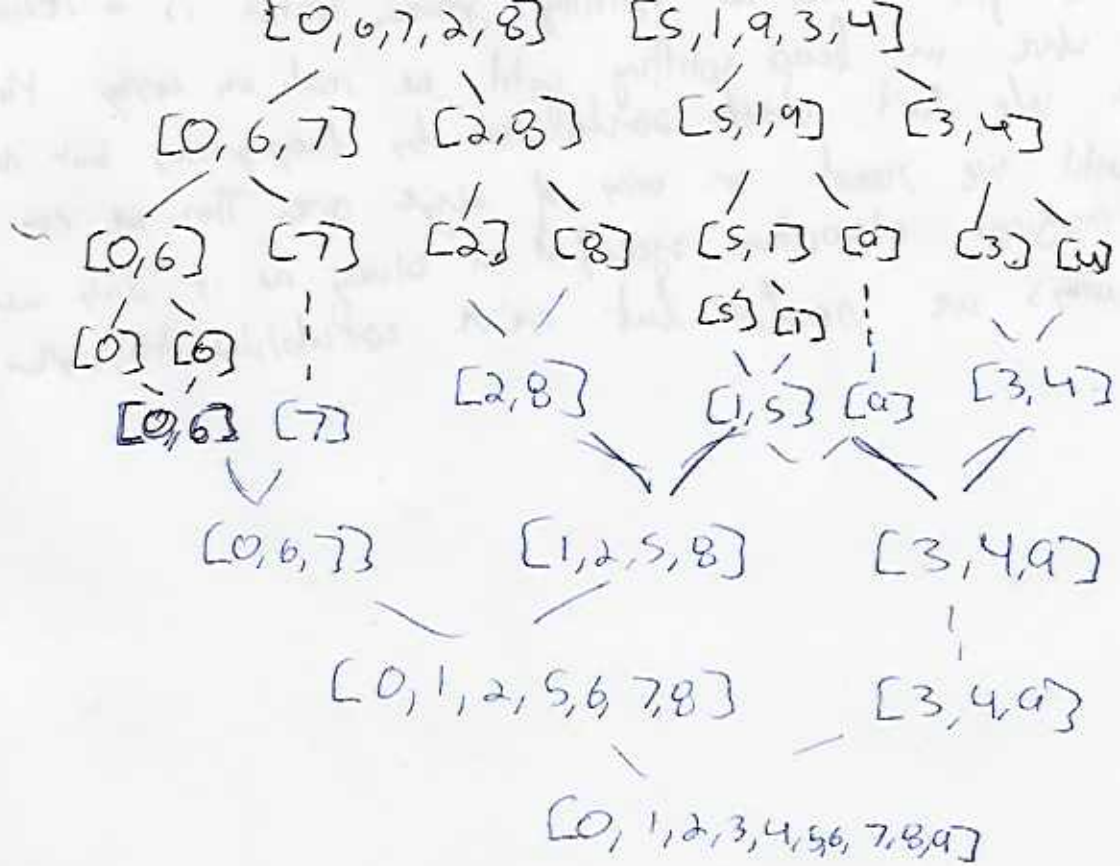 [0,6,7,2,8] [5,1,9,3,4]
[0,6,7] [2,8] [5,1,9] [3,4]
[0,6] [7] [2] [8] [5,1] [9] [3] [4]
[5] [1]
[0] [6]
[2,8] [1,5] [9] [3,4]
[0,6] [7]
[0,6,7] [1,2,5,8] [3,4,9]
[0,1,2,5,6,7,8] [3,4,9]
[0,1,2,3,4,5,6,7,8,9]